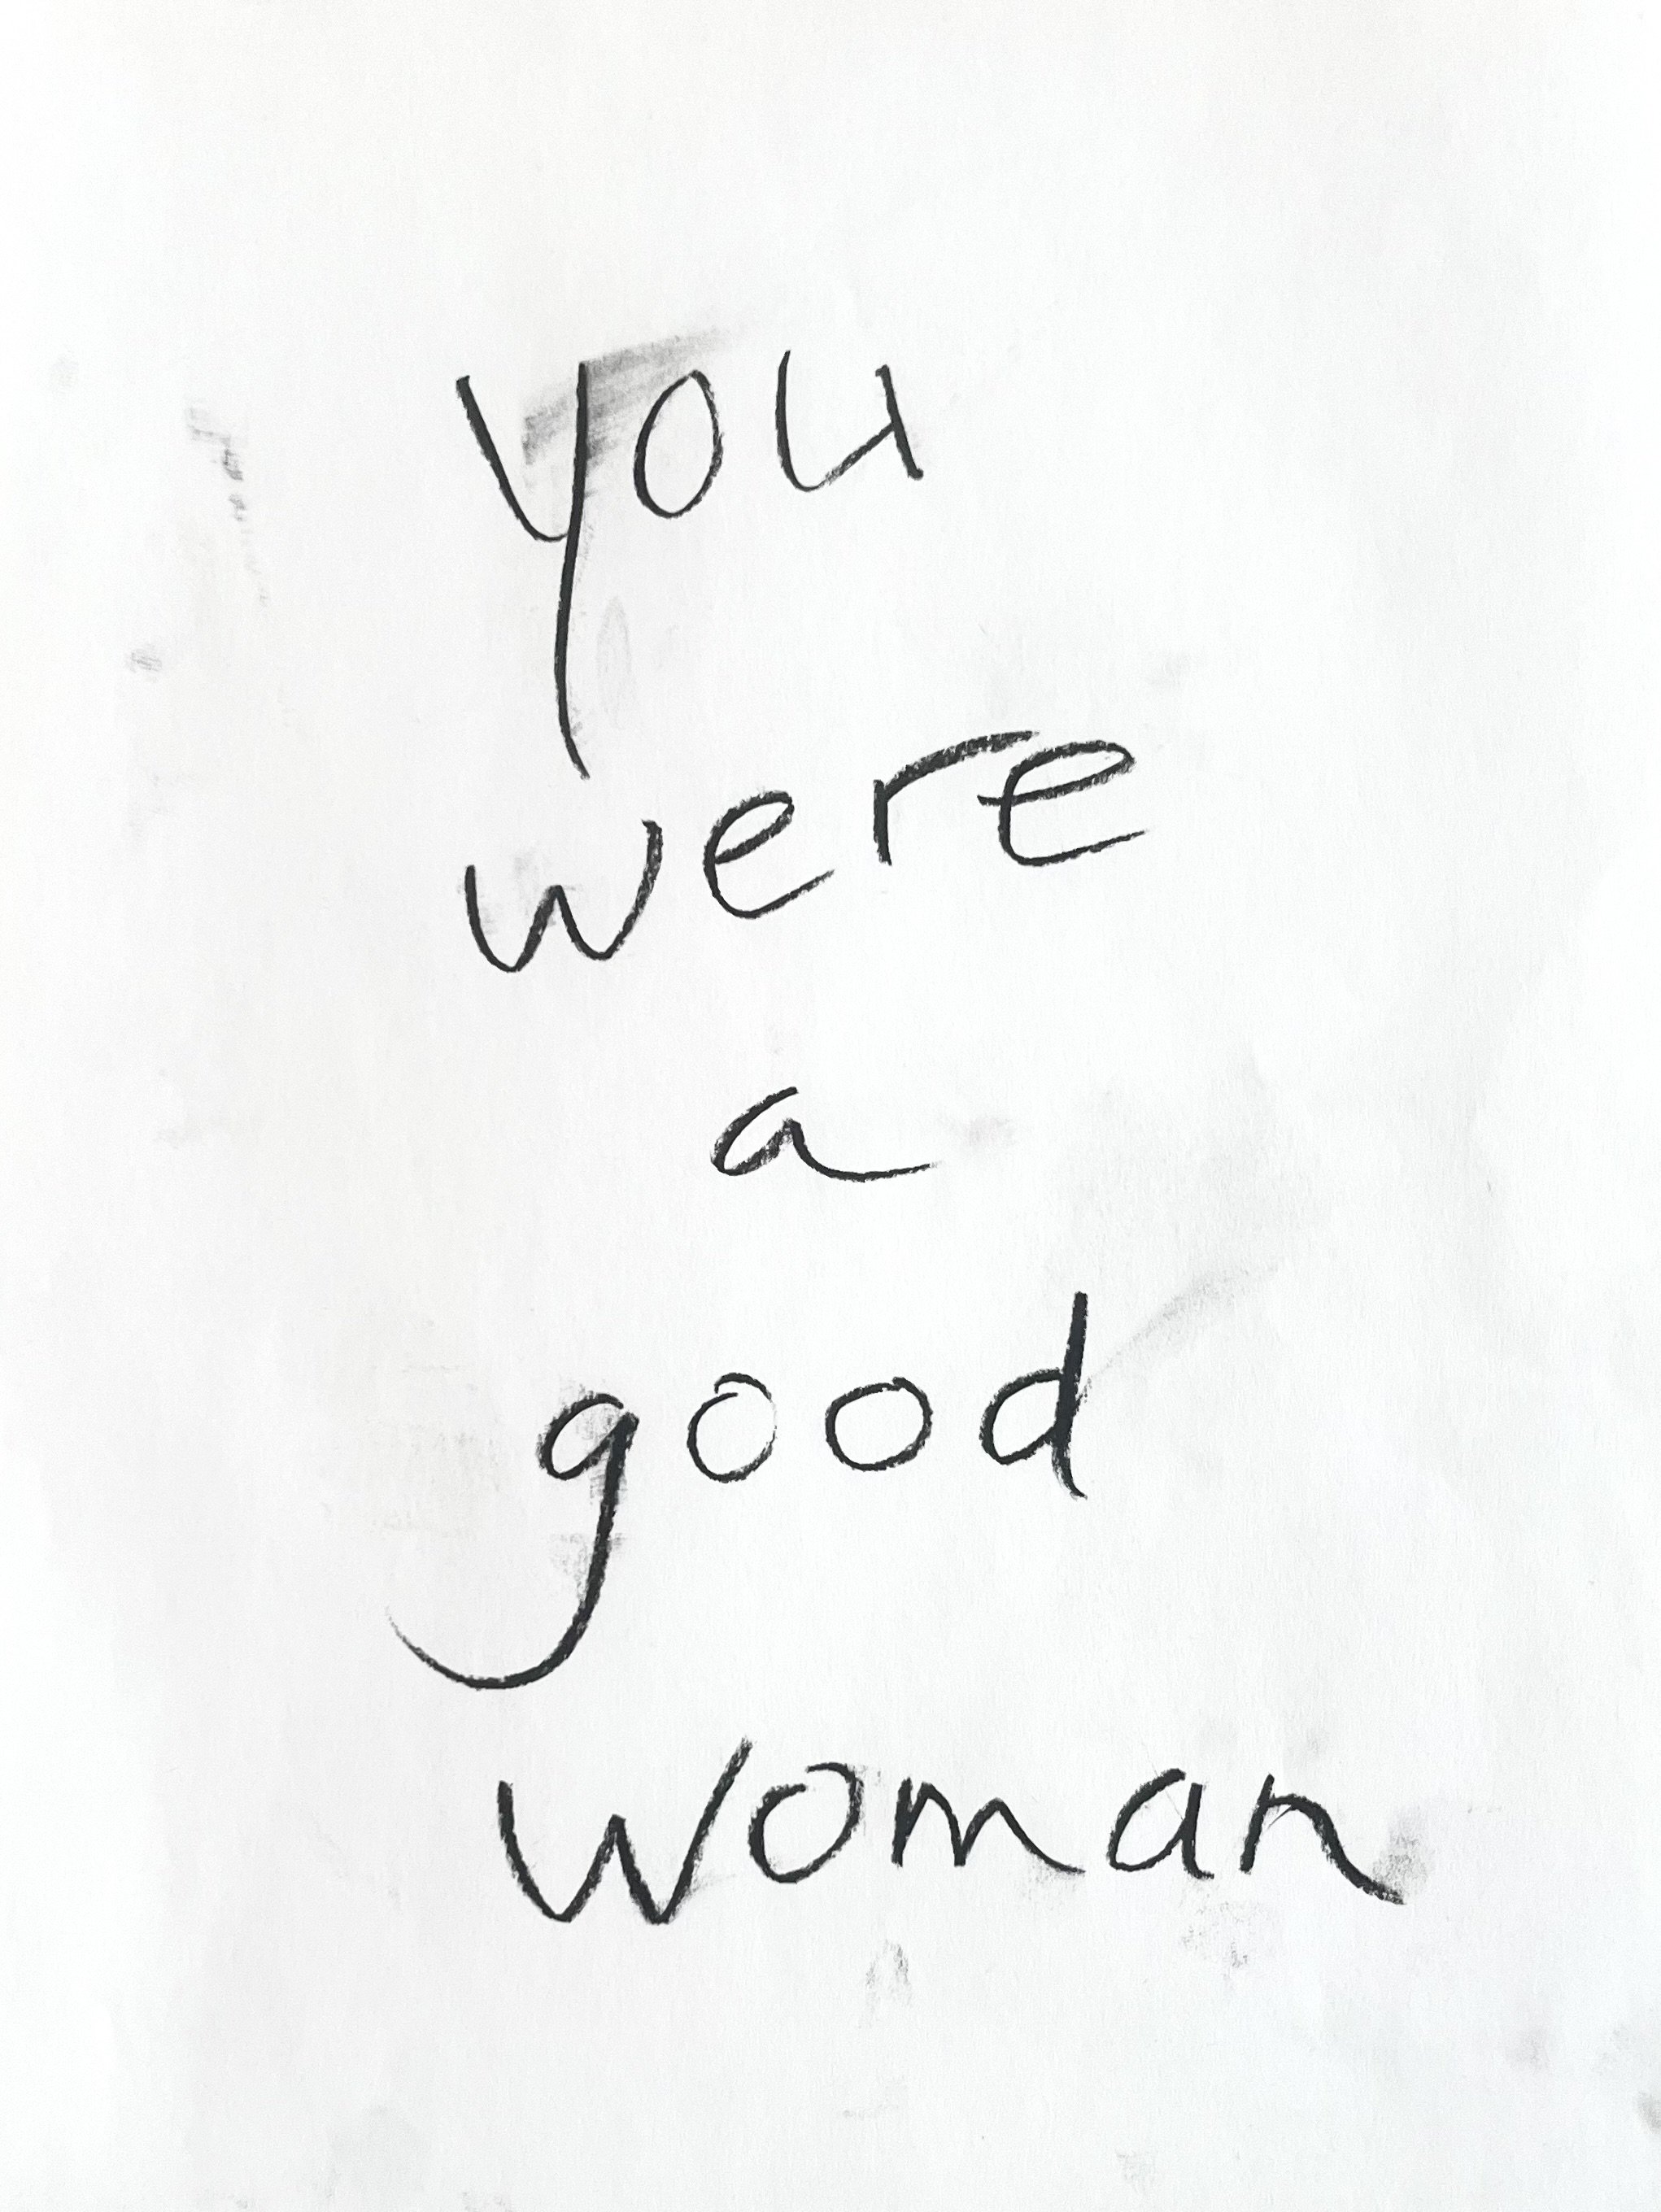 you
were
a
good
woman